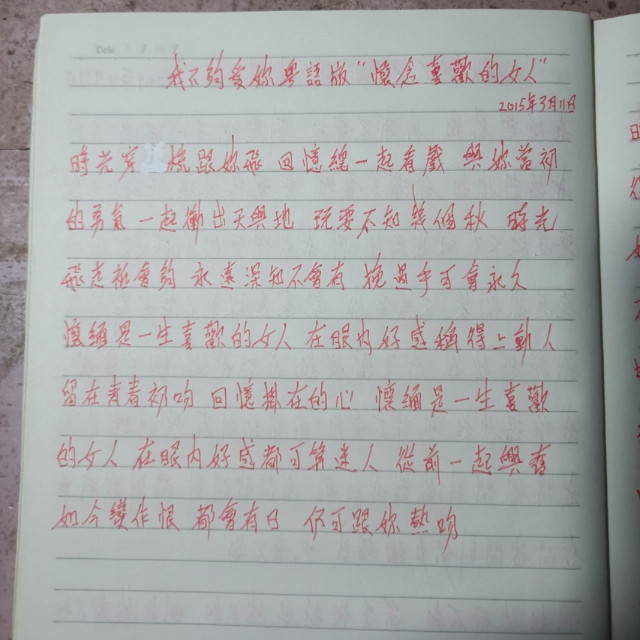 Date
我不夠愛你粵語版“懷念喜歡的女人”
2015年3月11日
時光穿 梳跟妳飛 回憶總一起看戲 與妳當初
的勇氣 一起衝出天與地 玩耍不知幾個秋 時光
飛走祗會夠 永遠深知不會有 挽過手可會永久
懷緬是一生喜歡的女人 在眼內好感稱得上動人
留在青春初吻 回憶掛在的心 懷緬是一生喜歡
的女人 在眼內好感都可算迷人 從前一起興奮
如今變作恨 都會有日 仍可跟妳熱吻